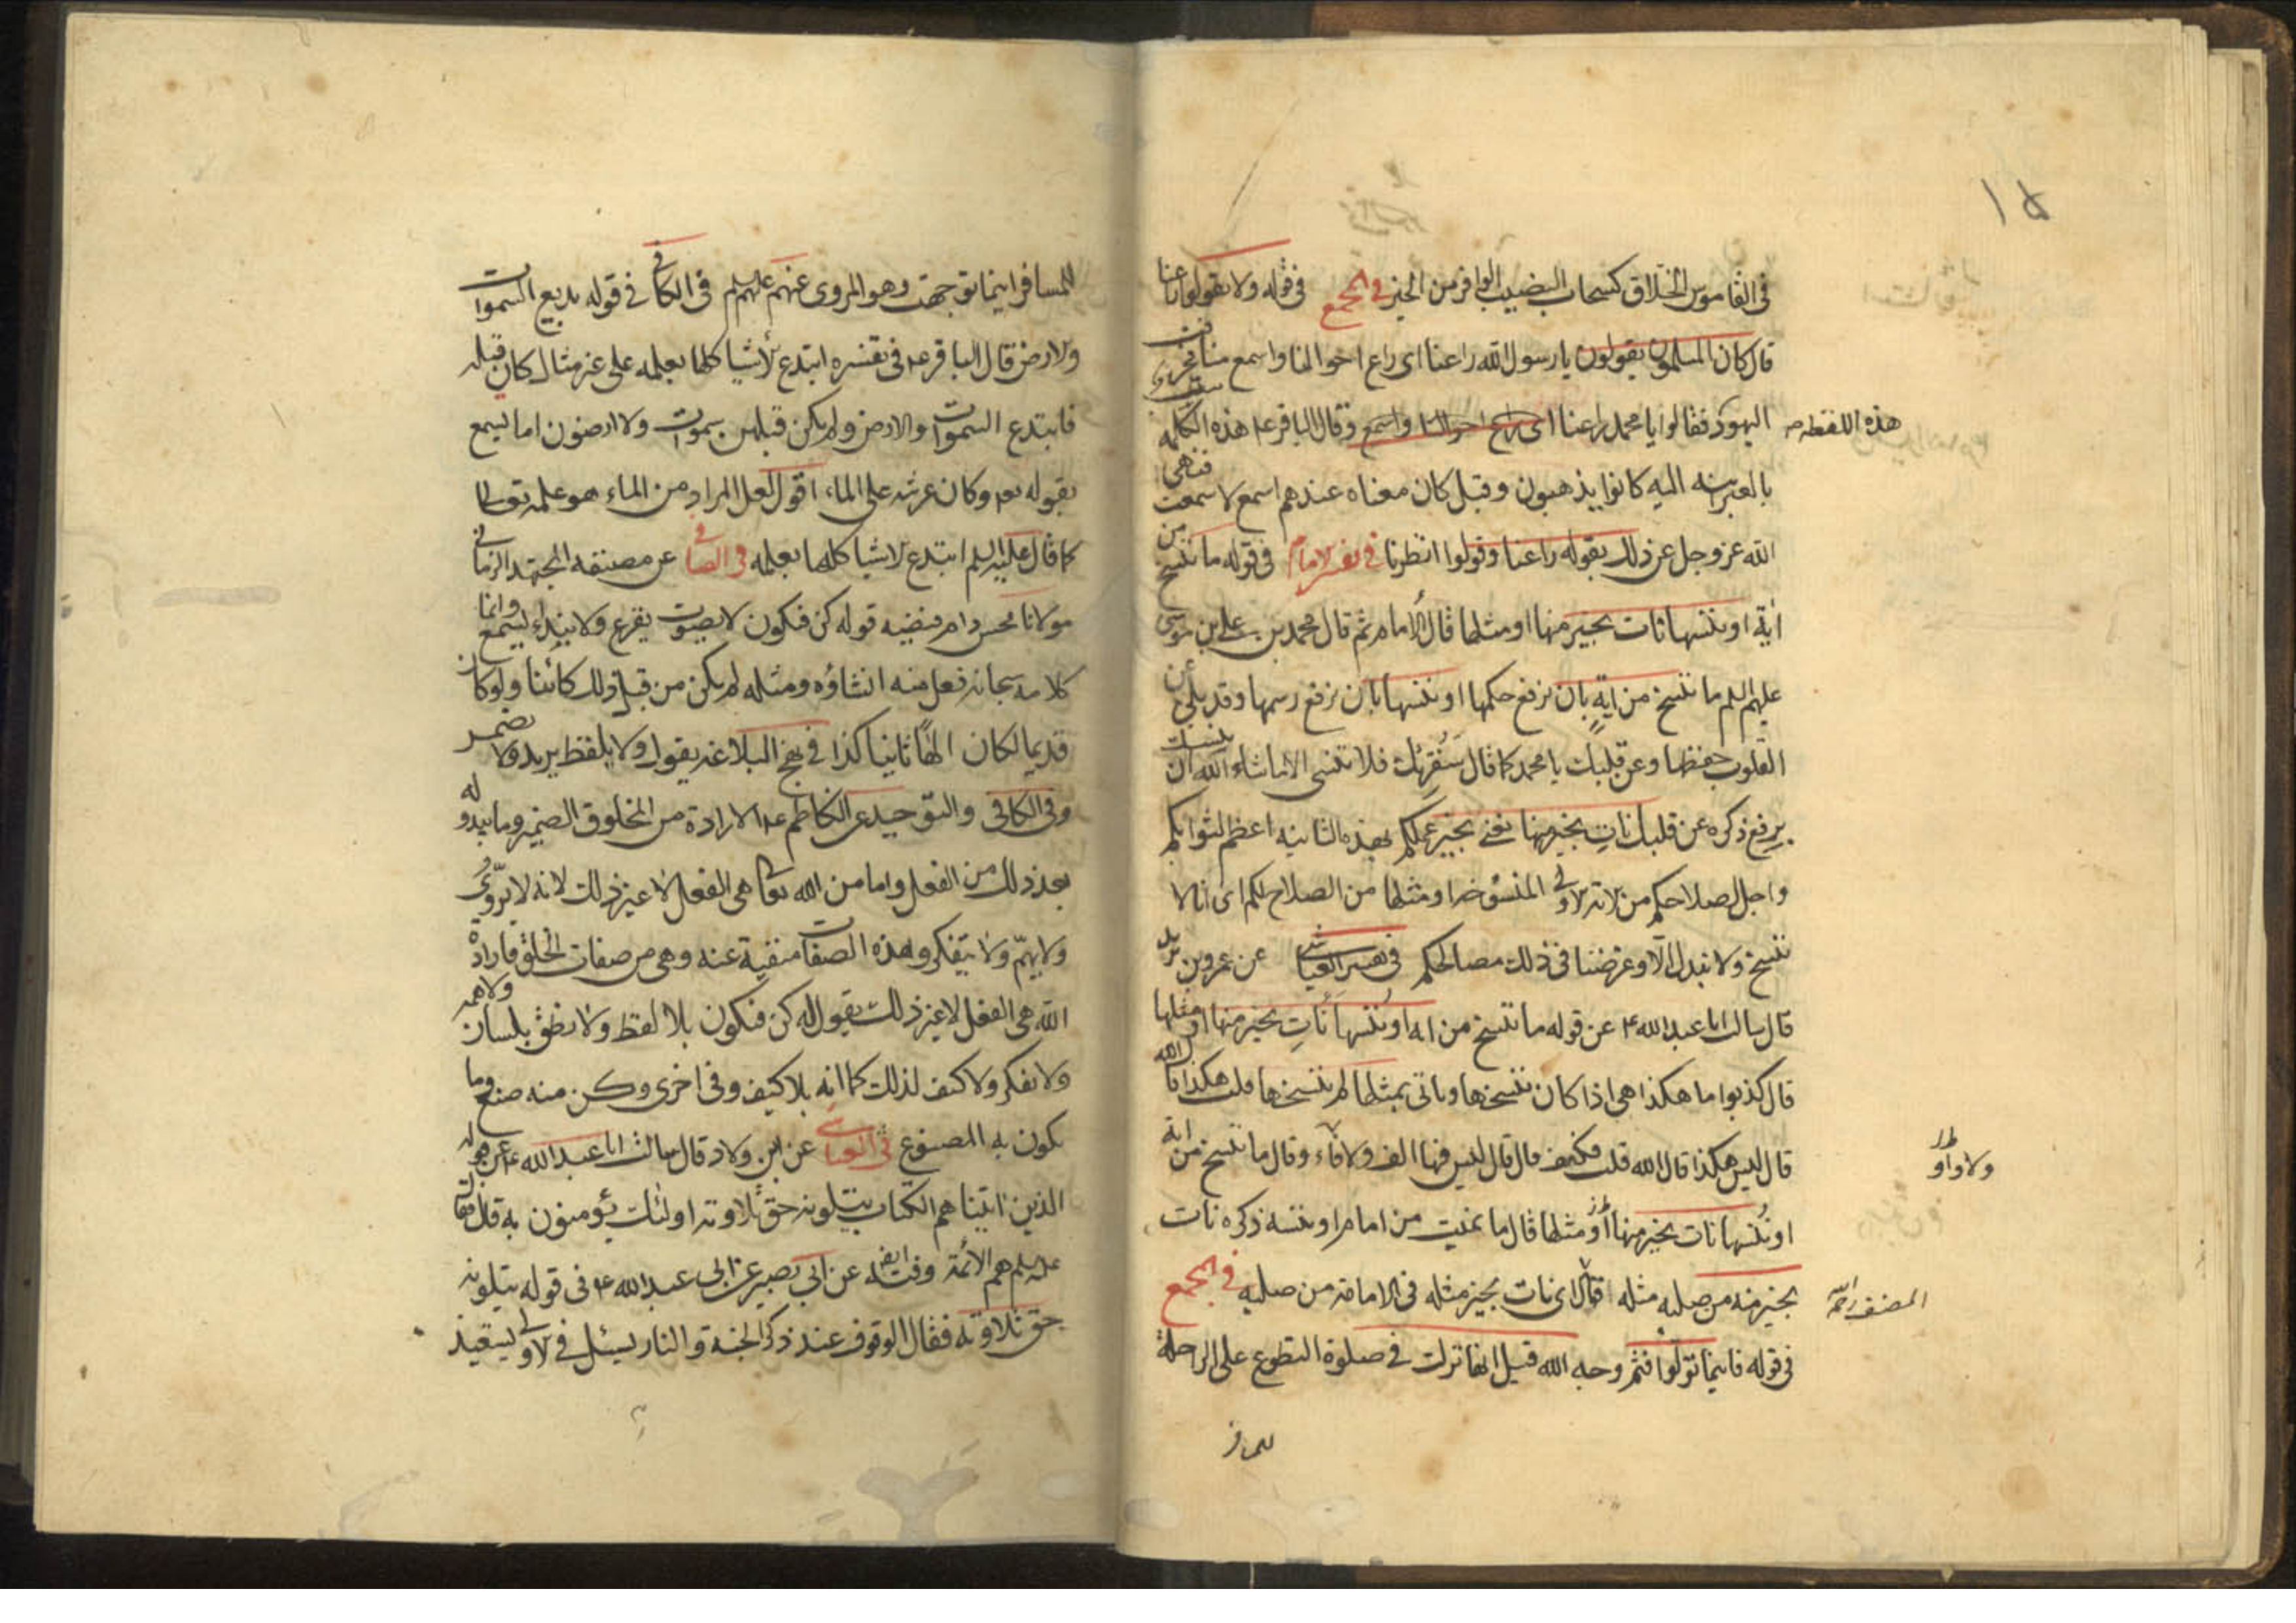 ١٥
في القاموس الخلاق كسحاب النصيب الوافر من الخير في المجمع في قوله ولا تقولوا راعنا
قال كان المسلمون يقولون يا رسول الله راعنا اى راع احوالنا واسمع منا فحرفت
اليهود فقالوا يا محمد راعنا وقال الباقر ع هذه الكلمة
هذه اللفظه
بالعبرانيه اليه كانوا يذهبون وقيل كان معناه عندهم اسمع لا سمعت فنهى
الله عز وجل عن ذلك بقوله راعنا وقولوا انظرنا في تفسير الامام في قوله ما ننسخ من
اية او ننسها نات بخير منها او مثلها قال الامام ثم قال محمد بن علي بن موسى
عليهم السلم ما ننسخ من اية بان نرفع حكمها او ننسها بان نرفع رسمها وقد بلى عن
القلوب حفظها وعن قلبك يا محمد كما قال سنقرئك فلا تنسى الا ما شاء الله ان ينسيك
يرفع ذكره عن قلبك نات بخير منها يعني بخير لكم فهذه الثانيه اعظم لثوابكم
واجل لصلاحكم من الاية الاولى المنسوخه او مثلها من الصلاح لكم اى انا لا
ننسخ ولا نبدل الا وغرضنا في ذلك مصالحكم في تفسير العياشي عن عمر بن يزيد
قال سالت ابا عبد الله ع عن قوله ما ننسخ من اية او ننسها نات بخير منها او مثلها
قال كذبوا ما هكذا هي اذا كان ننسخها وياتى بمثلها لم ننسخها قلت هكذا قال الله
قال ليس هكذا قال الله قلت فكيف قال قال ليس فيها الف ولا واو وقال ما ننسخ من اية
ولا واو
او ننسها نات بخير منها مثلها قال ما نميت من امام او ننسه ذكره نات
بخير منه من صلبه مثله اقول اى نات بخير مثله في الامامة من صلبه في المجمع
المصنف رحمه الله
في قوله فاينما تولوا فثم وجه الله قيل انها نزلت في صلوة التطوع على الراحلة
للمسافر
للمسافر اينما توجهت وهو المروى عنهم عليهم السلم في الكافي في قوله بديع السموات
والارض قال الباقر ع في تفسيره ابتدع الاشيا كلها بعلمه على غير مثال كان قبله
فابتدع السموات والارض ولم يكن قبلهن سموات ولا ارضون اما تسمع
بقوله تعالى وكان عرشه على الماء اقول لعل المراد من الماء هو علمه تعالى
كما قال عليه السلم ابتدع الاشيا كلها بعلمه في الصافي عن مصنفه المجتهد الزماني
مولانا محسن دام فيضه قوله كن فيكون لا بصوت يقرع ولا بنداء يسمع وانما
كلامه سبحانه فعل منه انشاؤه ومثله لم يكن من قبل ذلك كائنا ولو كان
قديما لكان الها ثانيا كذا في نهج البلاغة يقول ولا يلفظ يريد ولا يضمر
وفي الكافي والتوحيد عن الكاظم ع الارادة من المخلوق الضمير وما يبدو له
بعد ذلك من الفعل واما من الله تعالى هي الفعل لا غير ذلك لانه لا يروى
ولا يهم ولا يتفكر وهذه الصفات منفية عنه وهي من صفات الخلق فارادة
الله هي الفعل لا غير ذلك يقول له كن فيكون بلا لفظ ولا نطق بلسان ولا همه
ولا تفكر ولا كيف لذلك كما انه بلا كيف وفي اخرى وكن منه صنع وما
يكون به المصنوع في العياشي عن ابي ولاد قال سالت ابا عبد الله ع عن قوله
الذين اتيناهم الكتاب يتلونه حق تلاوته اولئك يؤمنون به قال فقال
عليه السلم هم الائمة وفيه ايضا عن ابي بصير عن ابى عبد الله ع في قوله يتلونه
حق تلاوته فقال الوقوف عند ذكر الجنة والنار يسئل في الاولى ويستعيذ